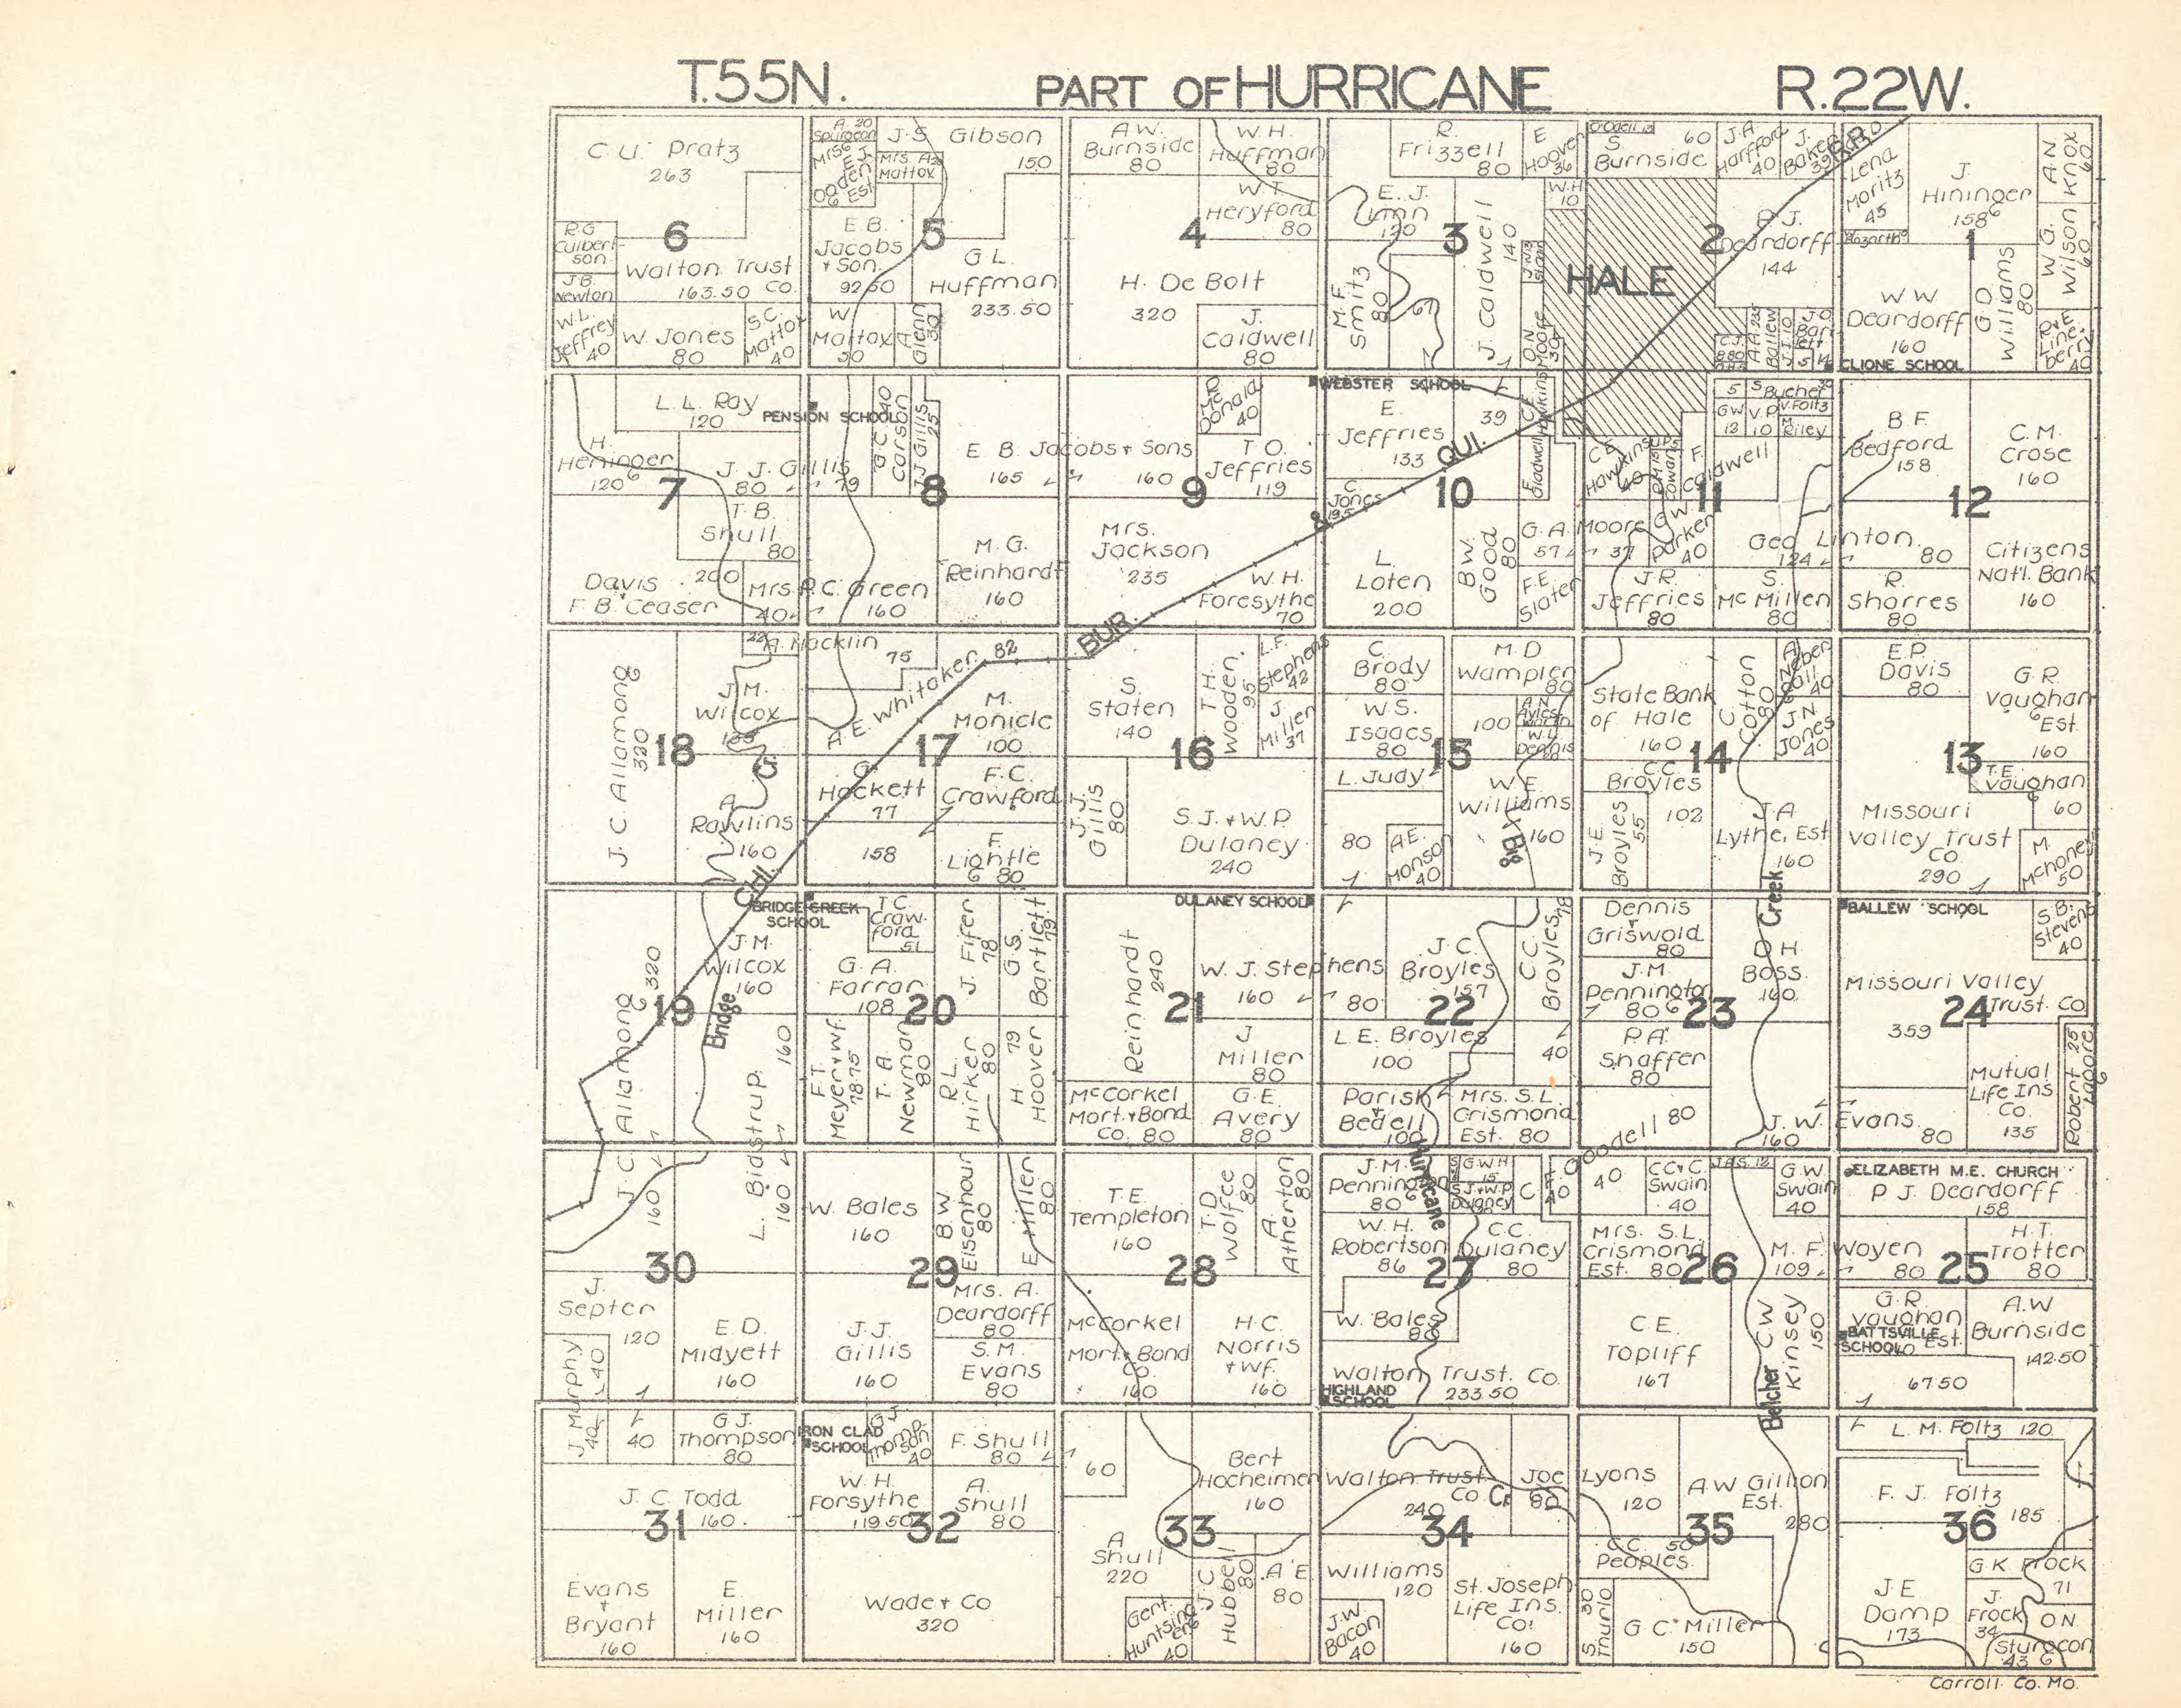 T.55N. PART OF HURRICANE R.22W.
C. U. Pratz
263
R.G
Culbert-
son
J.B.
Newton
6
Walton Trust
163.50 Co.
W.L.
Jeffrey
40
W. Jones
80
S.C.
Mattox
40
A. 20
Spurgeon
J. S. Gibson
150
Mrs. A.
Mattox
E.B.
Jacobs
+ Son.
9250
5
G L.
Huffman
233.50
W.
Mattox
50
A.
Glenn
30
A W.
Burnside
80
W. H.
Huffman
80
W. T.
Heryford
80
4
H. De Bolt
320
J.
Caldwell
80
R.
Frizzell
80
E
Hoover
36
W.H
10
E. J.
Linn
120
3
M. F.
Smitz
80
67
J. Caldwell
140
O. N
Moore
30
S.
Burnside
60
J.A
Harfford
40
J.
Baker
39
R.R.
HALE
2
A J.
Deardorff
144
Lena
Moritz
45
J.
Hininger
158
A. N.
Knox
60
Hogarth
1
W. G.
Wilson
60
W W
Deardorff
160
G D
Williams
80
CLIONE SCHOOL
L. L. Ray
120
PENSION SCHOOL
H.
Heninger
120
7
J. J. Gillis
80
79
T. B.
Shull
80
Davis 200
+
F. B. Ceaser
Mrs. R.C. Green
40
160
G C
Carson
40
J J Gillis
25
8
E B Jacobs + Sons
165
160
M. G.
Reinhardt
160
R.
Mc
Donald
40
T O.
Jeffries
119
9
Mrs.
Jackson
235
W. H.
Foresythe
70
BUR.
WEBSTER SCHOOL
E.
Jeffries
133
39
QUI.
&
C.
Jones
19.5
10
L.
Loten
200
B W.
Good
80
G. A. Moore
57
37
F.E.
Slater
S Bucher
5
G W
12
V. P
10
V. Foltz
M.
Riley
C E
Hawkins
40
F.
Caldwell
11
G W
Parker
40
Geo Linton
124
80
J R.
Jeffries
80
S.
Mc Millen
80
B F.
Bedford
158
C. M.
Crose
160
12
R.
Sharres
80
Citizens
Nat'l. Bank
160
J. C. Allamong
320
A. Hacklin
22
75
J. M.
Wilcox
18
A
Rawlins
160
A. E. Whitaker. 82
M.
Monicle
100
17
G
Hackett
77
F. C.
Crawford
158
F.
Lightle
80
S.
Staten
140
T. H.
Wooden.
95
L.F.
Stephens
42
J.
Millen
37
16
J.J.
Gillis
80
S. J. + W. P.
Dulaney
240
C.
Brody
80
M. D
Wampler
80
W S.
Isaacs
80
100
A. N.
Aylesworth
W. L
Dennis
15
L. Judy
80
A.E.
Monson
40
W. E.
Williams
160
State Bank
of Hale
160
C.
Cotton
80
J N.
Jones
40
14
C.C.
Broyles
102
J. E.
Broyles
55
J. A
Lythe, Est
160
E.P.
Davis
80
G. R.
Vaughan
Est.
160
13
T. E.
Vaughan
60
Missouri
Valley Trust
Co.
290
M.
Mchoney
50
CHI.
BRIDGE CREEK
SCHOOL
J. M.
Wilcox
160
320
19
Bridge
J. C. Allamong
160
L. Bidstrup.
160
160
T. C.
Craw-
ford
51
G. A.
Farran
108
J. Fifer
78
G. S.
Bartlett
79
20
F. T.
Meyer + wf.
78.75
T. A.
Newman
80
R. L.
Hinker
80
H
Hoover
79
DULANEY SCHOOL
Reinhardt
240
W. J. Stephens
160
80
21
J
Miller
80
McCorkel
Mort. + Bond
Co. 80
G. E.
Avery
80
J. C.
Broyles
157
C. C.
Broyles
78
22
L. E. Broyles
100
40
Parish
+
Bedell
100
Mrs. S. L.
Crismond
Est. 80
Dennis
+
Griswold
80
J. M
Pennington
80
D. H.
Boss.
160
23
Creek
P. A.
Shaffer
80
J. W. Evans.
160
80
BALLEW SCHOOL
S. B.
Stevens
40
Missouri Valley
Trust. Co
359
24
Mutual
Life Ins
Co.
135
Robert
Lapore
25
30
J.
Septer
120
J. Murphy
40
E. D.
Midyett
160
W. Bales
160
B. W.
Eisenhour
80
E. Millen
80
29
J. J.
Gillis
160
Mrs. A.
Deardorff
80
S. M.
Evans
80
T. E.
Templeton
160
T. D
Wolfee
80
A.
Atherton
80
28
McCorkel
Mort. + Bond
Co.
160
H. C.
Norris
+ Wf.
160
J. M.
Pennington
80
Hurricane
G. W H
15
S. J. + W. P
Dulaney
W. H.
Robertson
86
C. C.
Dulaney
80
27
W. Bales
80
Walton Trust. Co.
233.50
HIGHLAND
SCHOOL
C. F. Goodell 80
40
40
C C + C.
Swain
40
G. W.
Swain
40
Mrs. S.L.
Crismond
Est. 80
26
M. F. Woyen
109
80
C. E.
Topliff
167
C W
Kinsey
150
Belcher
ELIZABETH M.E. CHURCH
P J. Deardorff
158
H. T.
Trotter
80
25
G. R.
Vaughan
Est.
BATTSVILLE
SCHOOL
A. W
Burnside
142.50
6750
J. Murphy
40
40
G J.
Thompson
80
J. C. Todd
160.
31
Evans
+
Bryant
160
E.
Miller
160
IRON CLAD
SCHOOL
G J
Thompson
40
F. Shull
80
W. H.
Forsythe
119.50
A.
Shull
80
32
Wade + Co
320
60
Bert
Hocheimer
160
33
A
Shull
220
Gert.
Huntsinger
40
J. C.
Hubbell
80
A. E. Williams
80
120
Walton Trust
Co.
240
Cr
34
J. W.
Bacon
40
St. Joseph
Life Ins.
Co.
160
Joe Lyons
80
120
A W Gillion
Est.
280
35
C. C. 50
Peoples.
S.
Thurlo
30
G C Miller
150
L. M. Foltz 120
F. J. Foltz
185
36
G K Frock
71
J. E
Damp
173
J.
Frock
34
O N.
Sturgeon
43
Carroll Co. Mo.